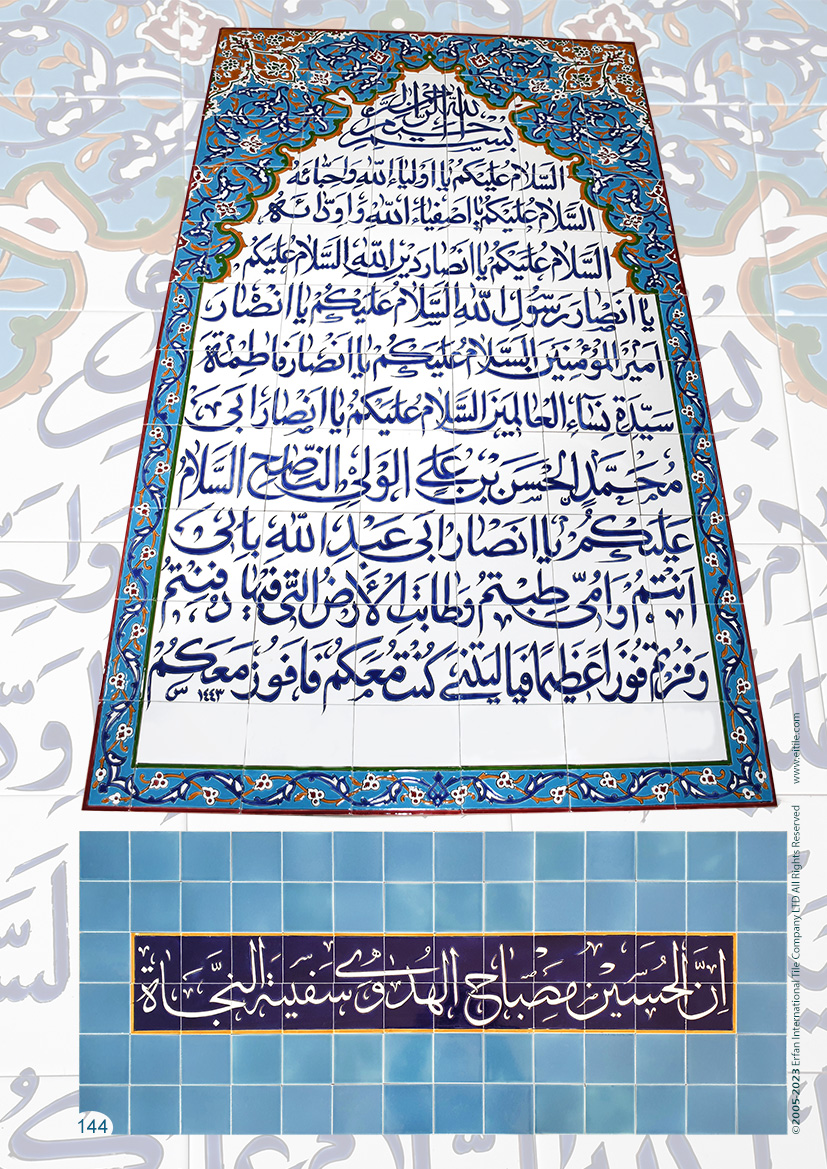 بسم الله الرحمن الرحیم
السلام علیکم یا اولیاء الله واحبائه
السلام علیکم یا اصفیاء الله و اودائه
السلام علیکم یا انصار دین الله السلام علیکم
یا انصار رسول الله السلام علیکم یا انصار
امیر المؤمنین السلام علیکم یا انصار فاطمة
سیدة نساء العالمین السلام علیکم یا انصار ابی
محمد الحسن بن علی الولی الناصح السلام
علیکم یا انصار ابی عبد الله بابی
انتم و امی طبتم وطابت الأرض التی فیها دفنتم
و فزتم فوزا عظیما فیا لیتنی کنت معکم فافوز معکم
۱۴۴۳
ان الحسین مصباح الهدی و سفینة النجاة
144
©2005-2023 Erfan International Tile Company LTD All Rights Reserved
www.eitile.com